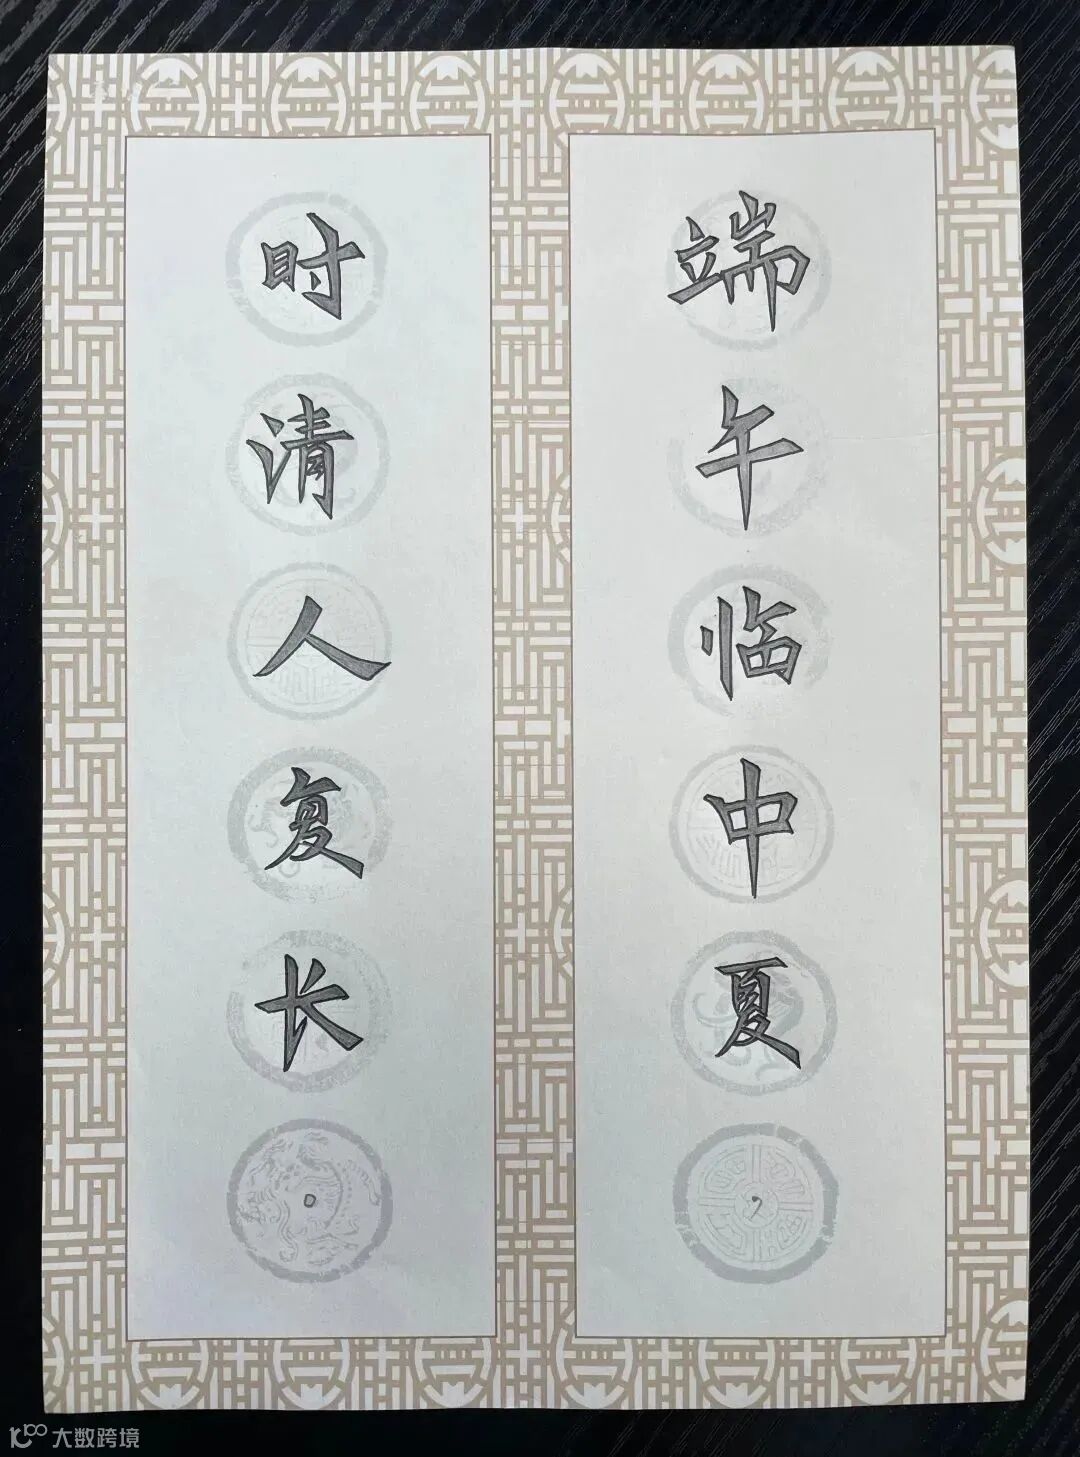 端午临中夏，
时清人复长。
大数跨境